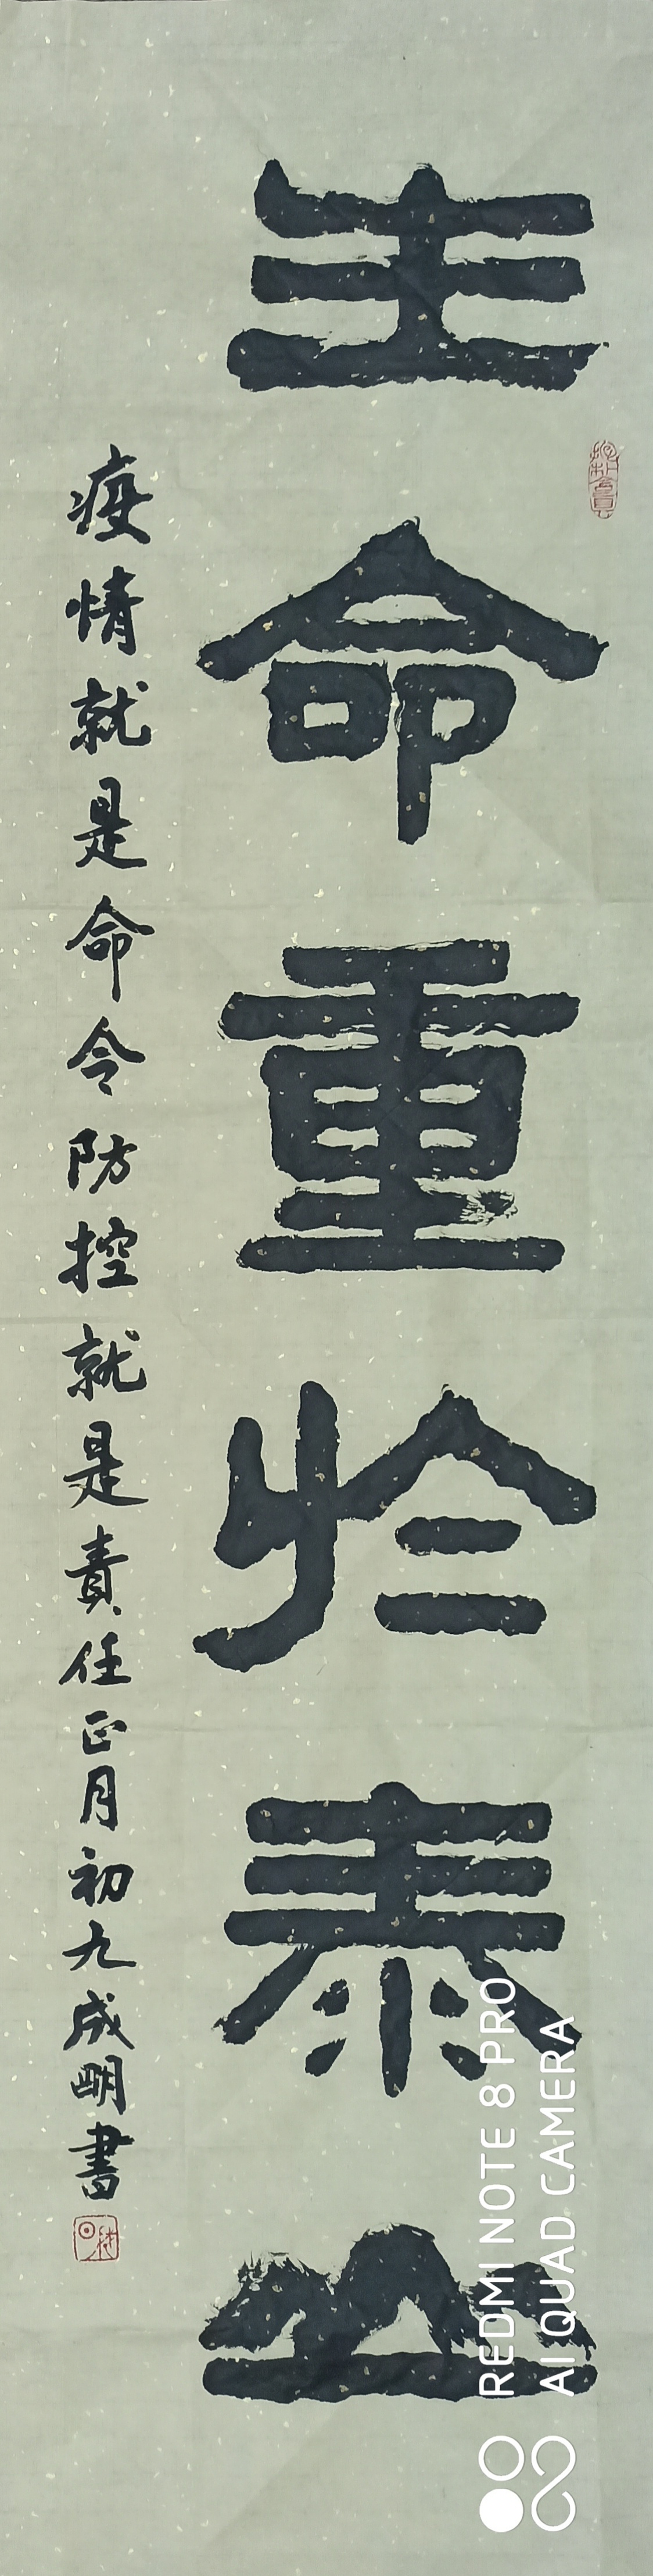 生命重於泰山
疫情就是命令防控就是責任正月初九成明書
REDMI NOTE 8 PRO
AI QUAD CAMERA